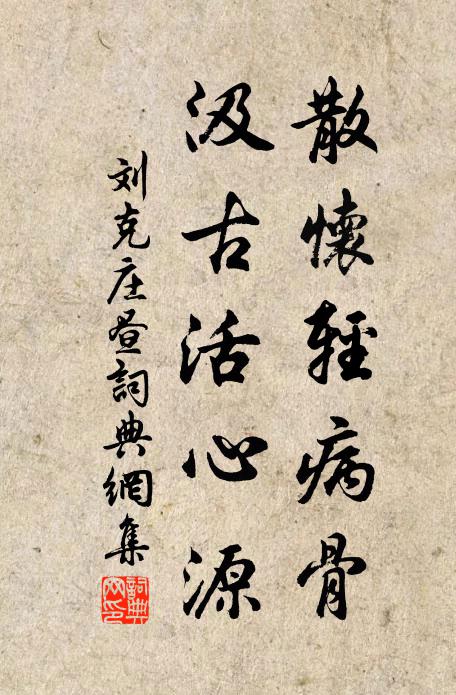 散懷輕病骨
汲古活心源
刘克庄詞典網集
詞典
网印